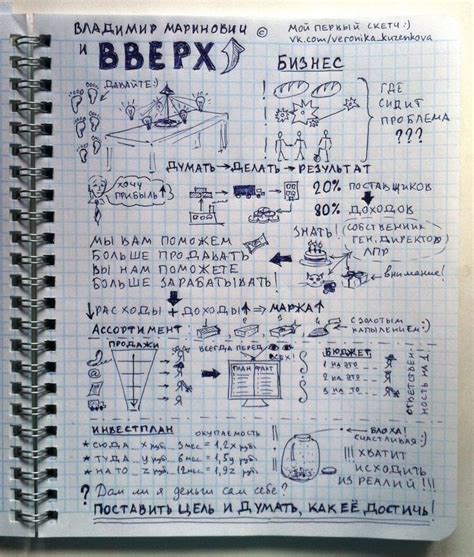 ВЛАДИМИР МАРИНОВИЧ ©
И ВВЕРХ
МОЙ ПЕРВЫЙ СКЕТЧ :)
vk.com/veronika_kuzenkova
ДАВАЙТЕ:)
БИЗНЕС
ГДЕ
СИДИТ
ПРОБЛЕМА
???
ДУМАТЬ → ДЕЛАТЬ → РЕЗУЛЬТАТ
ХОЧУ
ПРИБЫЛЬ!
20% ПОСТАВЩИКОВ
80% ДОХОДОВ
МЫ ВАМ ПОМОЖЕМ
БОЛЬШЕ ПРОДАВАТЬ
ВЫ НАМ ПОМОЖЕТЕ
БОЛЬШЕ ЗАРАБАТЫВАТЬ!
ЗНАТЬ!
(СОБСТВЕННИК
ГЕН. ДИРЕКТОР)
ЛПР
ВНИМАНИЕ!
↓РАСХОДЫ + ДОХОДЫ↑ ⇒ МАРЖА↑
АССОРТИМЕНТ
1 2 3 4
С ЗОЛОТЫМ
НАПЫЛЕНИЕМ:)
ПРОДАЖИ
Я
ВСЕГДА ПЕРЕД
ВСЕХ!
ПЛАН ФАКТ
БЮДЖЕТ
1 НА ЭТО
2 НА ЭТО
3 НА ЭТО
ОТВЕТСТВЕН-
НОСТЬ НА 1
ИНВЕСТПЛАН ОКУПАЕМОСТЬ
* СЮДА _ X руб. 3 мес = 1,2x руб.
* ТУДА _ y руб. 6 мес = 1,5y руб.
* НА ТО _ Z руб. 12 мес = 1,9z руб.
БЛОХА!
СЧАСТЛИВАЯ:)
!!! ХВАТИТ
ИСХОДИТЬ
ИЗ РЕАЛИЙ!!!
? Дам ли я деньги сам себе?
ПОСТАВИТЬ ЦЕЛЬ И ДУМАТЬ, КАК ЕЁ ДОСТИЧЬ!